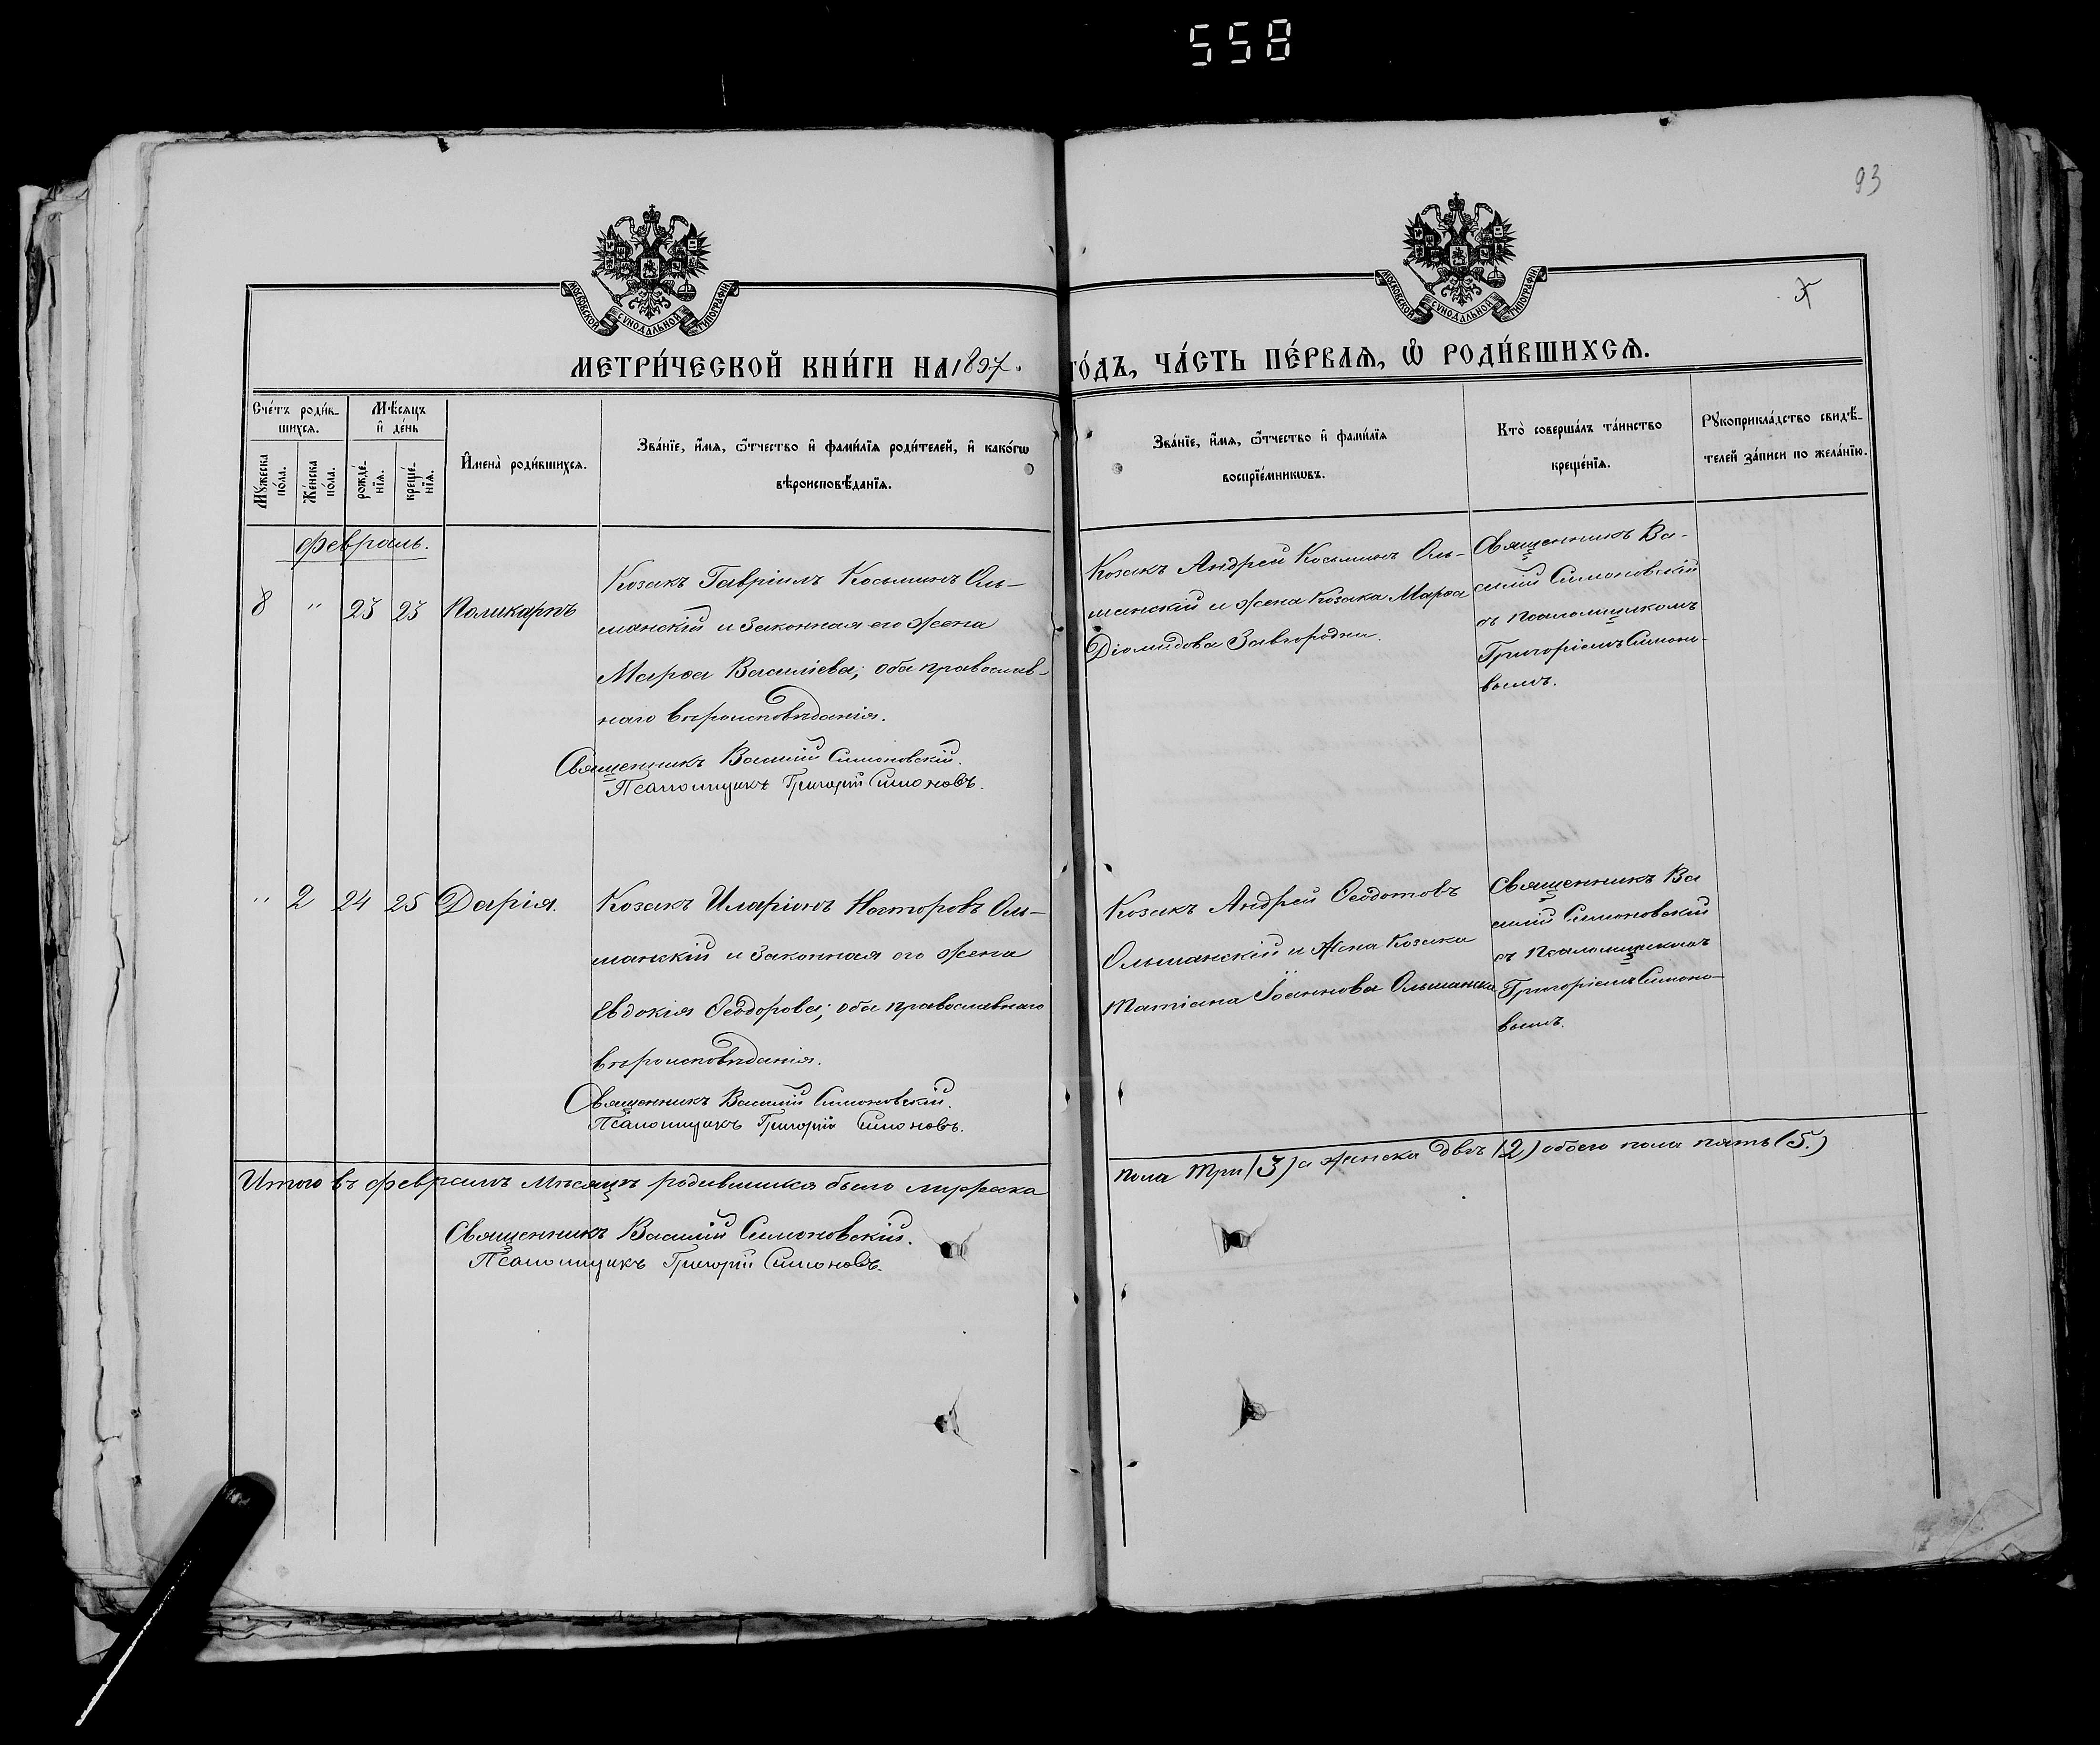 558
93
МОСКОВСКОЙ СУНОДАЛЬНОЙ ТИПОГРАФІИ
МОСКОВСКОЙ СУНОДАЛЬНОЙ ТИПОГРАФІИ
МЕТРИ́ЧЕСКОЙ КНИ́ГИ НА 1897.
ГО́ДЪ, ЧА́СТЬ ПЕ́РВАѦ, Ѡ҆ РОДИ́ВШИХСѦ.
Сче́тъ роди́в-
шихсѧ.
Мѣ́сѧцъ
и҆ де́нь
Мꙋ́жеска
по́ла.
Же́нска
по́ла.
рожде́-
нїѧ.
креще́-
нїѧ.
И҆мена̀ роди́вшихсѧ.
Зва́нїе, и҆́мѧ, ѻ҆́тчество и҆ фами́лїѧ роди́телей, и҆ како́гѡ
вѣроисповѣ́данїѧ.
Зва́нїе, и҆́мѧ, ѻ҆́тчество и҆ фами́лїѧ
воспрїе́мникѡвъ.
Кто̀ соверша́лъ та́инство
креще́нїѧ.
Рꙋкоприкла́дство свидѣ́-
телей за́писи по жела́нїю.
февраль.
8 " 23 23 Поликарпъ
Козакъ Гавріилъ Косьминъ Оль-
шанскій и законная его жена
Марѳа Василіева; оба православ-
наго вѣроисповѣданія.
Священникъ Василій Симоновскій.
Псаломщикъ Григорій Симоновъ.
Козакъ Андрей Косьминъ Оль-
шанскій и жена козака Марѳа
Діомидова Завгородни.
Священникъ Ва-
силій Симоновскій
съ псаломщикомъ
Григоріемъ Симоно-
вымъ.
" 2 24 25 Дарія.
Козакъ Иларіонъ Несторовъ Оль-
шанскій и законная его жена
Евдокія Ѳеодорова; оба православнаго
вѣроисповѣданія.
Священникъ Василій Симоновскій.
Псаломщикъ Григорій Симоновъ.
Козакъ Андрей Ѳеодотовъ
Ольшанскій и жена козака
Татіана Іоаннова Ольшанска
Священникъ Ва
силій Симоновскій
съ псаломщикомъ
Григоріемъ Симоно-
вымъ.
Итого въ февралѣ мѣсяцѣ родившихся было мужеска
пола три (3) а женска двѣ (2) обоего пола пять (5.)
Священникъ Василій Симоновскій.
Псаломщикъ Григорій Симоновъ.